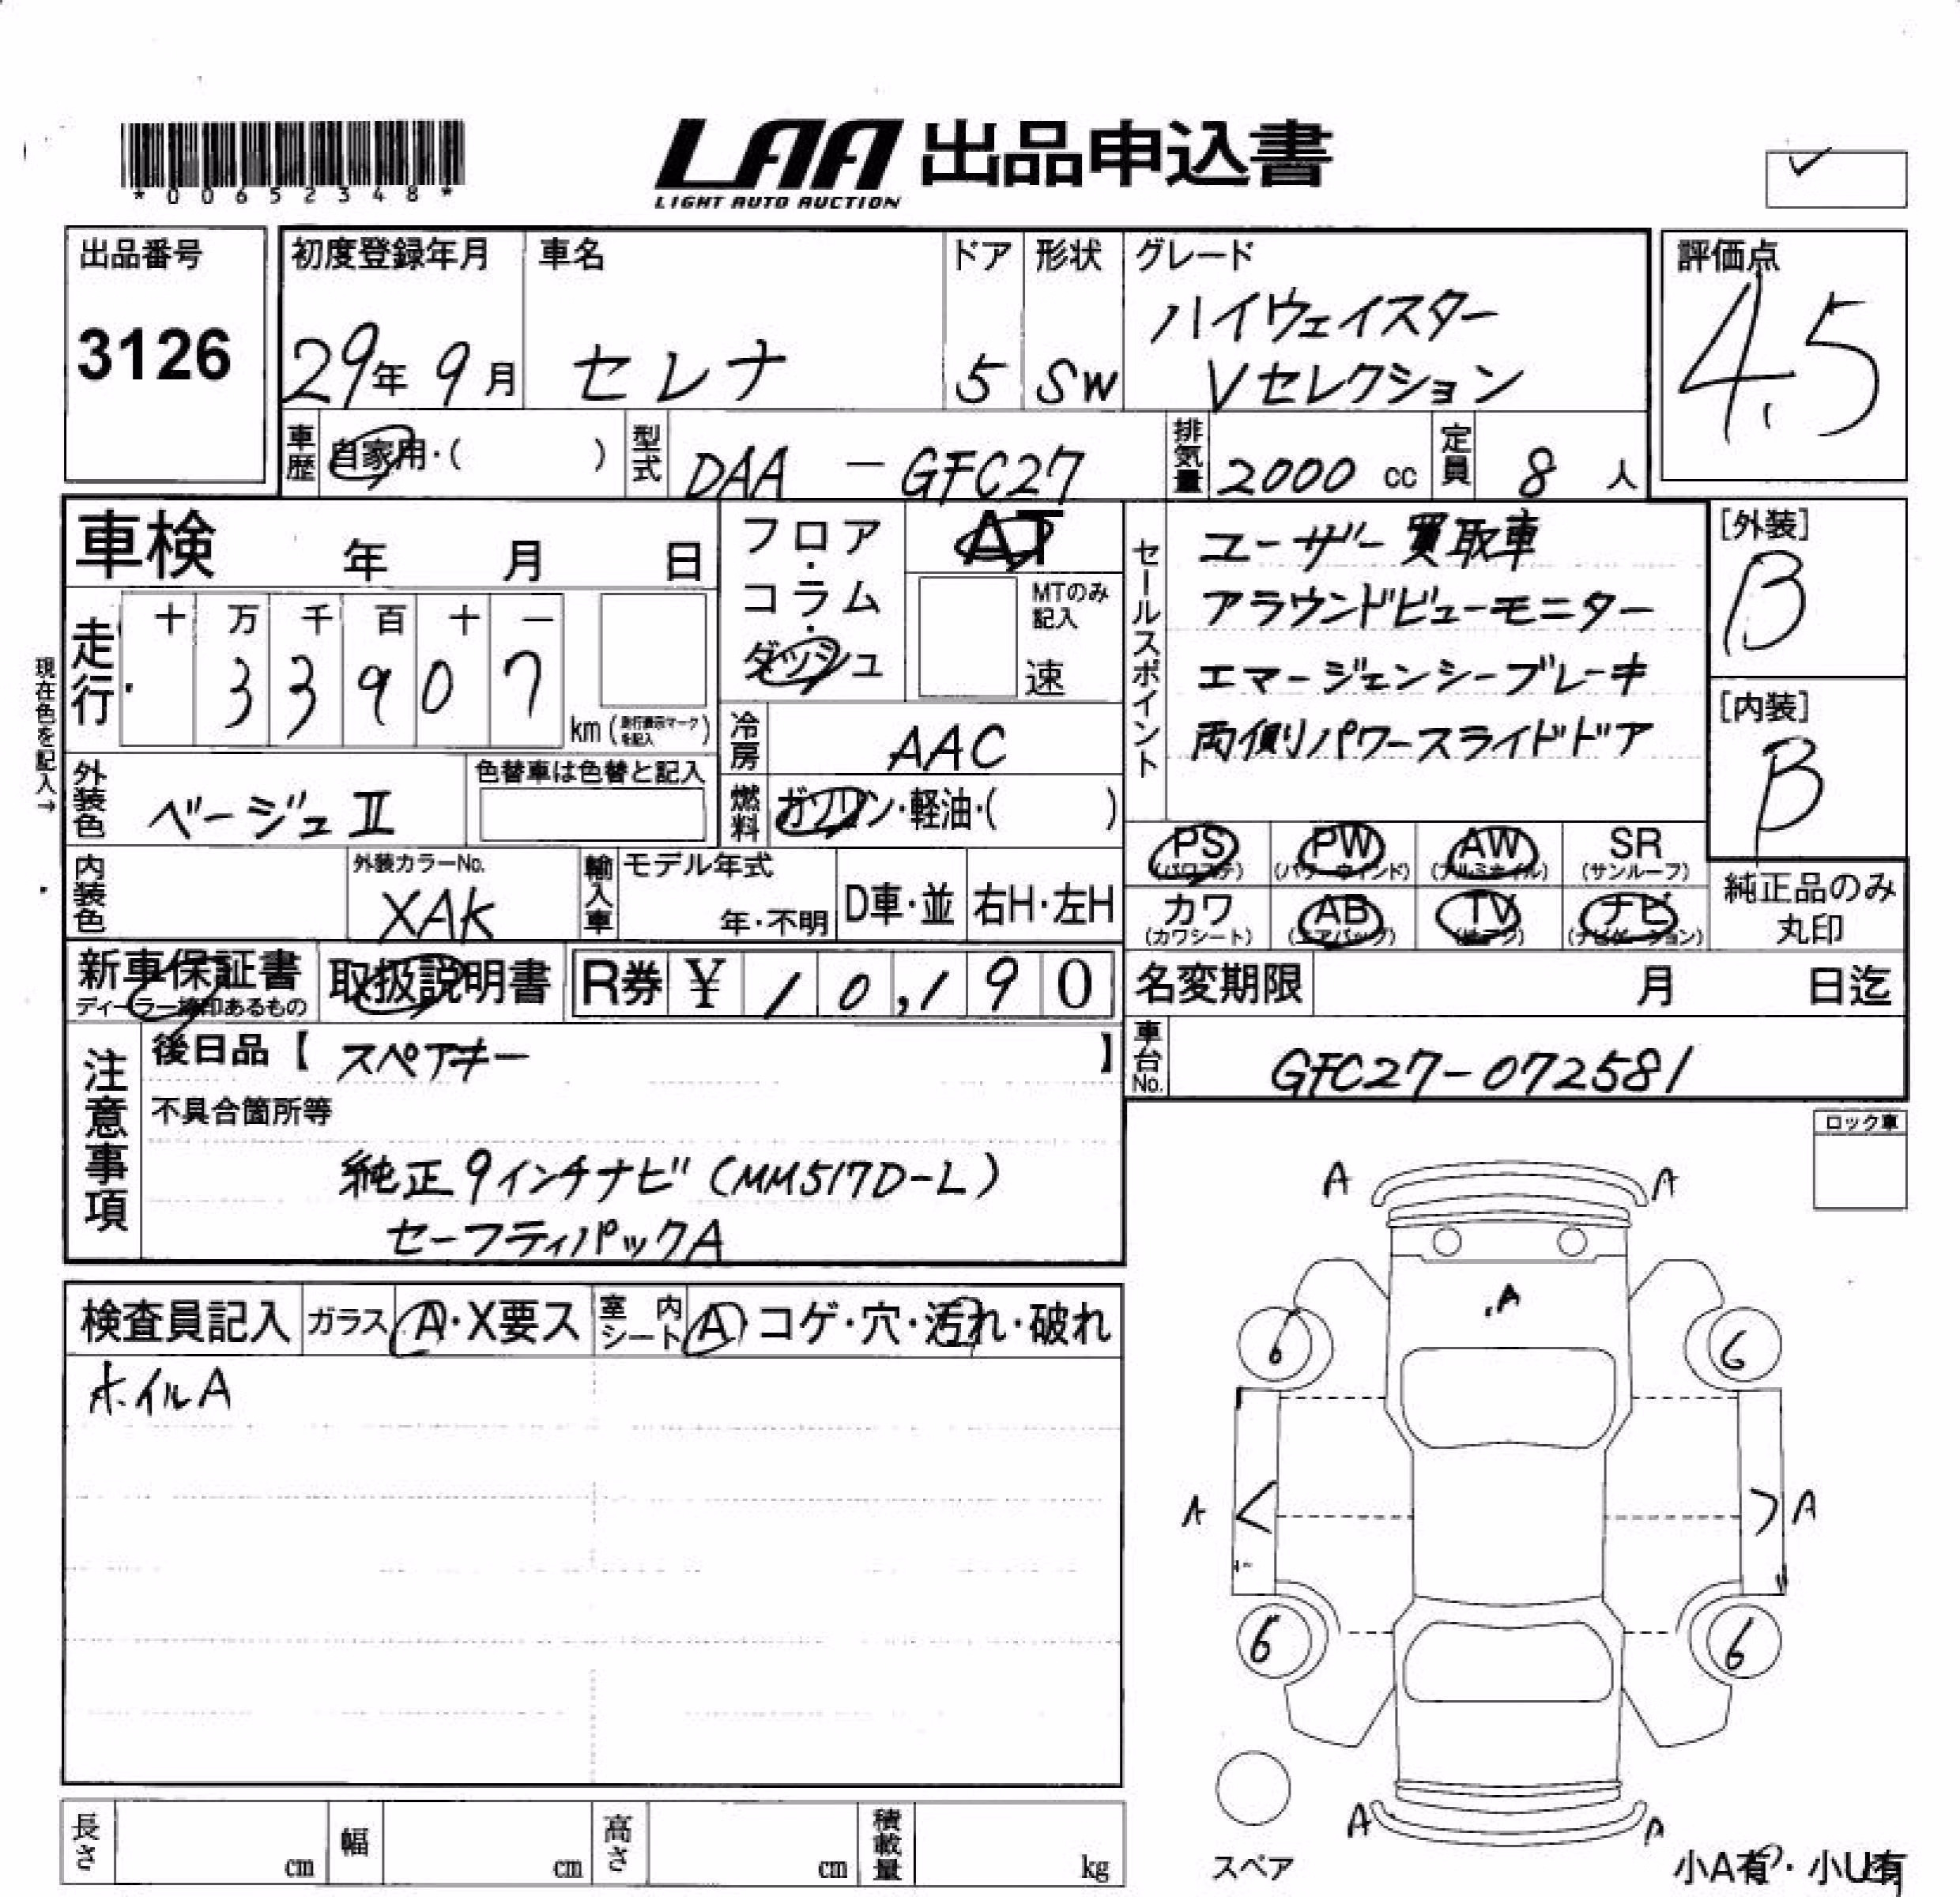 *00652348*
LAA 出品申込書
LIGHT AUTO AUCTION
出品番号
3126
初度登録年月
29年 9月
車名
セレナ
ドア
5
形状
SW
グレード
ハイウェイスター
Vセレクション
評価点
4.5
車歴
自家用・( )
型式
DAA - GFC27
排気量
2000 cc
定員
8 人
車検 年 月 日
フロア・コラム・ダッシュ
AT
MTのみ記入
速
セールスポイント
ユーザー買取車
アラウンドビューモニター
エマージェンシーブレーキ
両側パワースライドドア
[外装]
B
[内装]
B
現在色を記入→
走行
十 万 千 百 十 一
3 3 9 0 7
km (走行表示マークを記入)
冷房
AAC
外装色
ベージュⅡ
色替車は色替と記入
燃料
ガソリン・軽油・( )
PS (パワステ)
PW (パワーウィンド)
AW (アルミホイル)
SR (サンルーフ)
内装色
外装カラーNo.
XAK
輸入車
モデル年式
年・不明
D車・並
右H・左H
カワ (カワシート)
AB (エアバッグ)
TV (テレビ)
ナビ (ナビゲーション)
純正品のみ
丸印
新車保証書
ディーラー捺印あるもの
取扱説明書
R券 ¥ 1 0,1 9 0
名変期限 月 日迄
注意事項
後日品【 スペアキー 】
不具合箇所等
純正9インチナビ (MM517D-L)
セーフティパックA
車台No.
GFC27-072581
ロック車
検査員記入
ガラス A・X要ス
室内シート A・コゲ・穴・汚れ・破れ
ホイルA
A A
A
6 6
A A
6 6
A A
スペア
小A有・小U有
長さ cm
幅 cm
高さ cm
積載量 kg